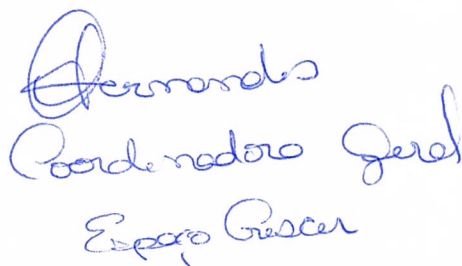 Fernandes
Coordenadora Geral
Espaço Crescer